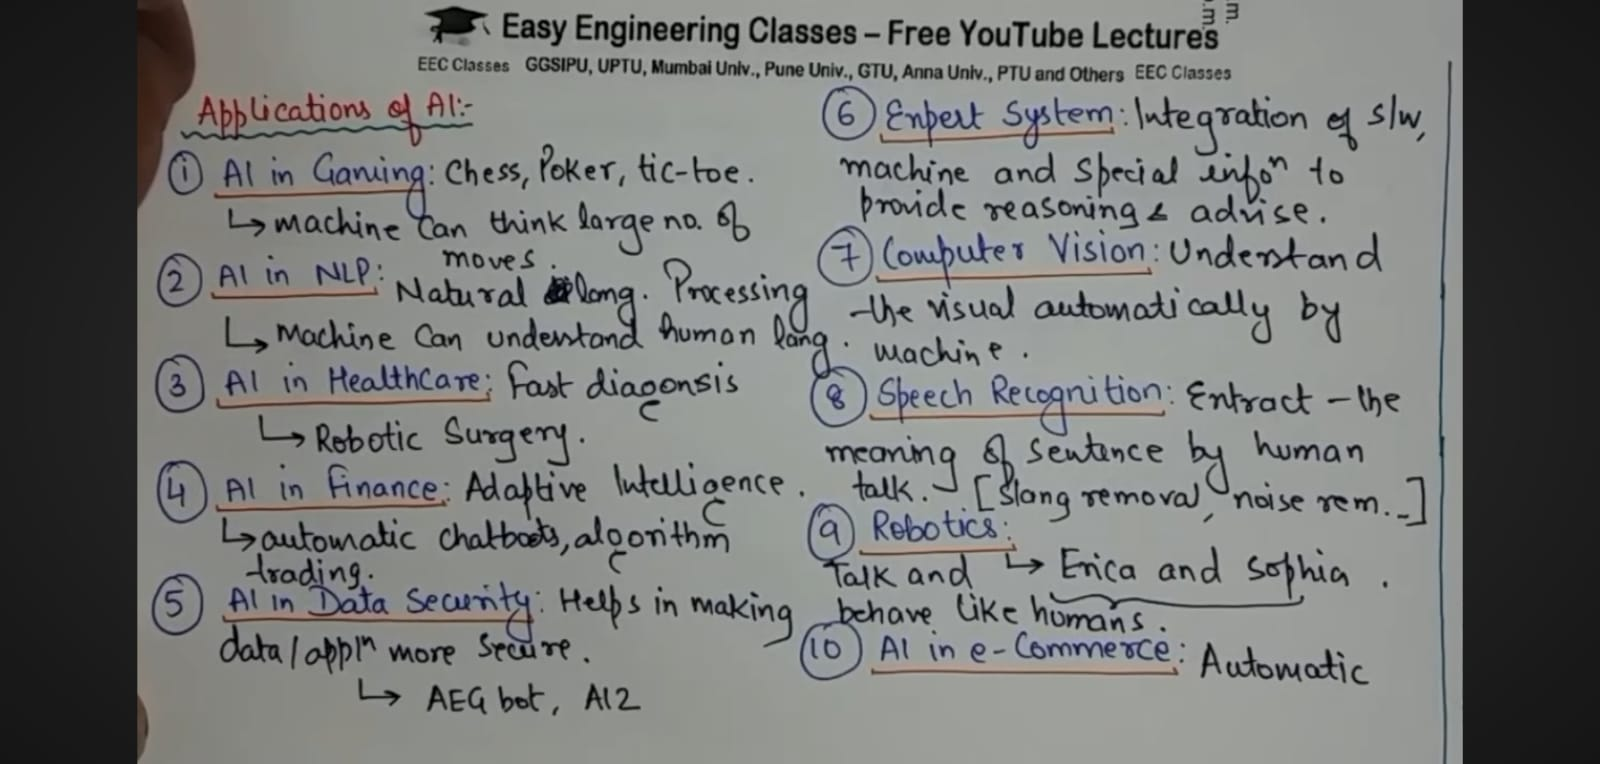 Easy Engineering Classes – Free YouTube Lectures
EEC Classes GGSIPU, UPTU, Mumbai Univ., Pune Univ., GTU, Anna Univ., PTU and Others EEC Classes
Applications of AI:-
① AI in Gaming: Chess, Poker, tic-toe.
↳ machine can think large no. of
moves.
② AI in NLP: Natural lang. Processing
↳ Machine Can understand human lang.
③ AI in HealthCare: Fast diagonsis
↳ Robotic Surgery.
④ AI in Finance: Adaptive Intelligence.
↳ automatic chatboots, algorithm
trading.
⑤ AI in Data Security: Helps in making
data/appln more secure.
↳ AEG bot, AI2
⑥ Expert System: Integration of s/w,
machine and special infon to
provide reasoning & advise.
⑦ Computer Vision: Understand
the visual automatically by
machine.
⑧ Speech Recognition: Extract the
meaning of sentence by human
talk. [Slang removal, noise rem...]
⑨ Robotics:
↳ Erica and Sophia.
Talk and
behave like humans.
⑩ AI in e-Commerce: Automatic